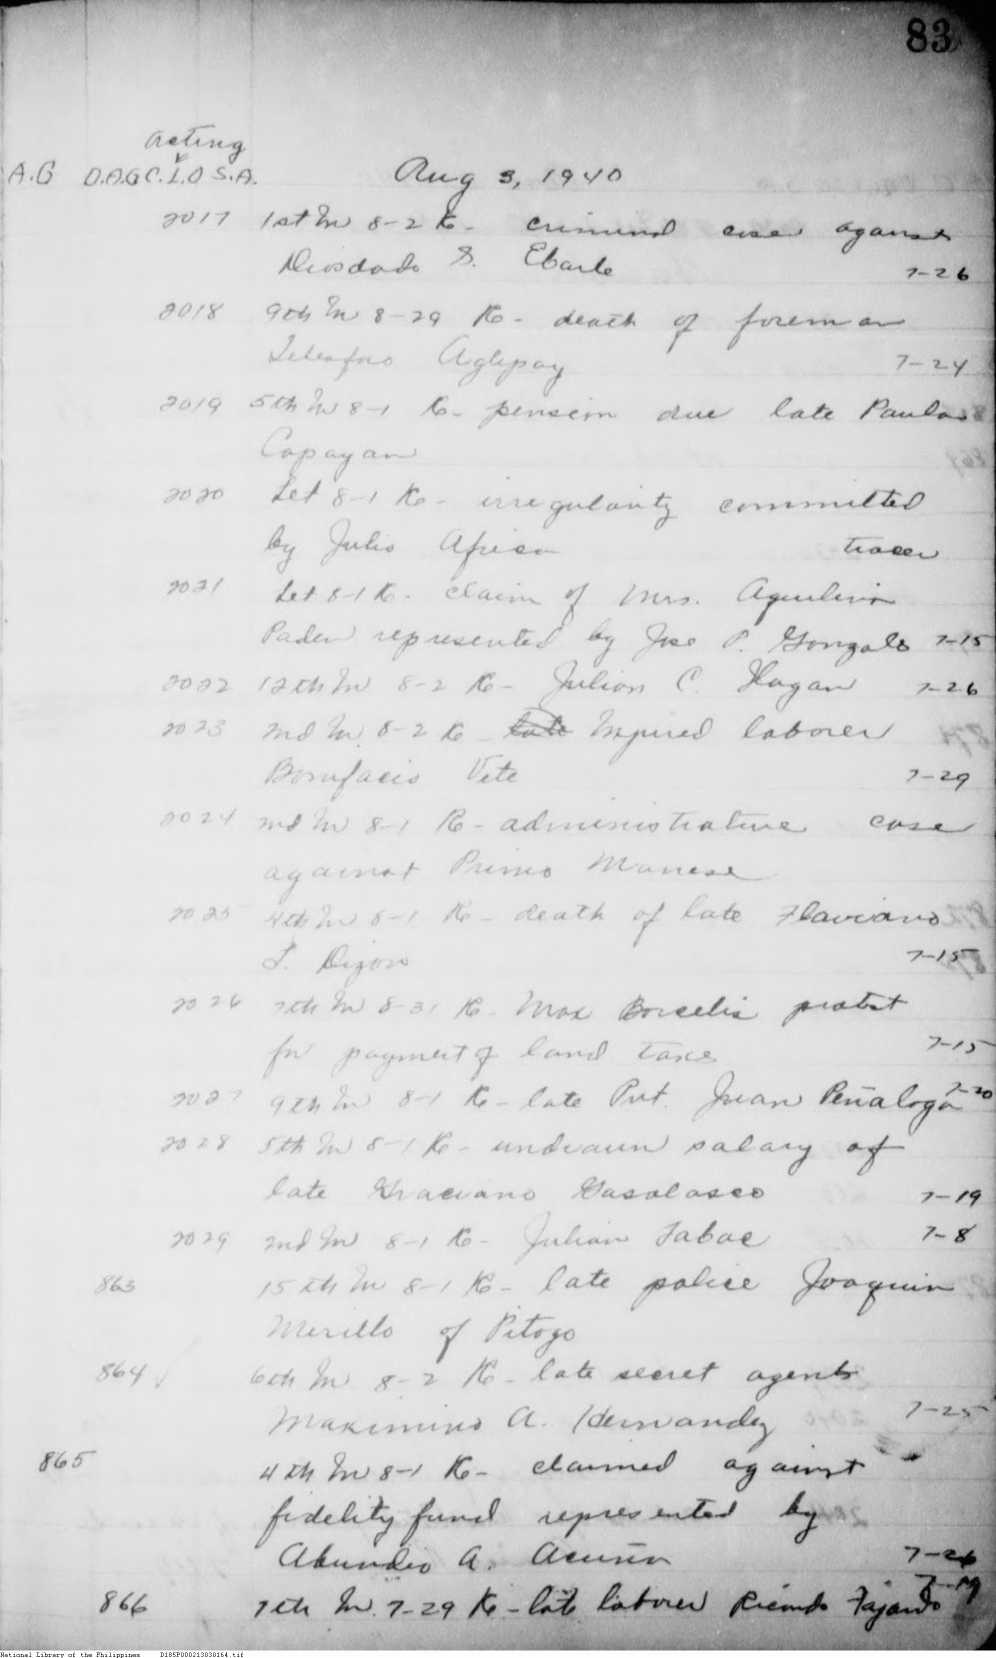 83
acting
A.G D.A.G C.I.O S.A.
Aug 3, 1940
2017 1st In 8-2 R- criminal case against
Diosdado S. Ebarle 7-26
2018 9th In 8-29 R- death of foreman
Aglipay 7-24
2019 5th In 8-1 R- pension due late Paulo
Capayan
2020 Let 8-1 R- irregularity committed
by Julio Africa tracer
2021 Let 8-1 R- claim of Mrs. Aquilina
Paden represented by Jose P. Gonzalo 7-15
2022 12th In 8-2 R- Julian C. Hagan 7-26
2023 2nd In 8-2 R- late Injured laborer
Bonifacio Vete 7-29
2024 2nd In 8-1 R- administrative case
against Primo Manese
2025 4th In 8-1 R- death of late Flaviano
L. Dizon 7-15
2026 7th In 8-31 R- Max Borcelis protest
for payment of land taxe 7-15
2027 9th In 8-1 R- late Pvt. Juan Peñaloga 7-20
2028 5th In 8-1 R- undrawn salary of
late Graciano Gasalasco 7-19
2029 2nd In 8-1 R- Julian Tabac 7-8
863 15th In 8-1 R- late police Joaquin
Merillo of Pitogo
864 6th In 8-2 R- late secret agent
Maximino A. Hernandez 7-25
865 4th In 8-1 R- claimed against
fidelity fund represented by
Abundio A. Acuña 7-26
7-19
866 7th In. 7-29 R- late laborer Ricardo Fajardo
National Library of the Philippines D185P000213830164.tif